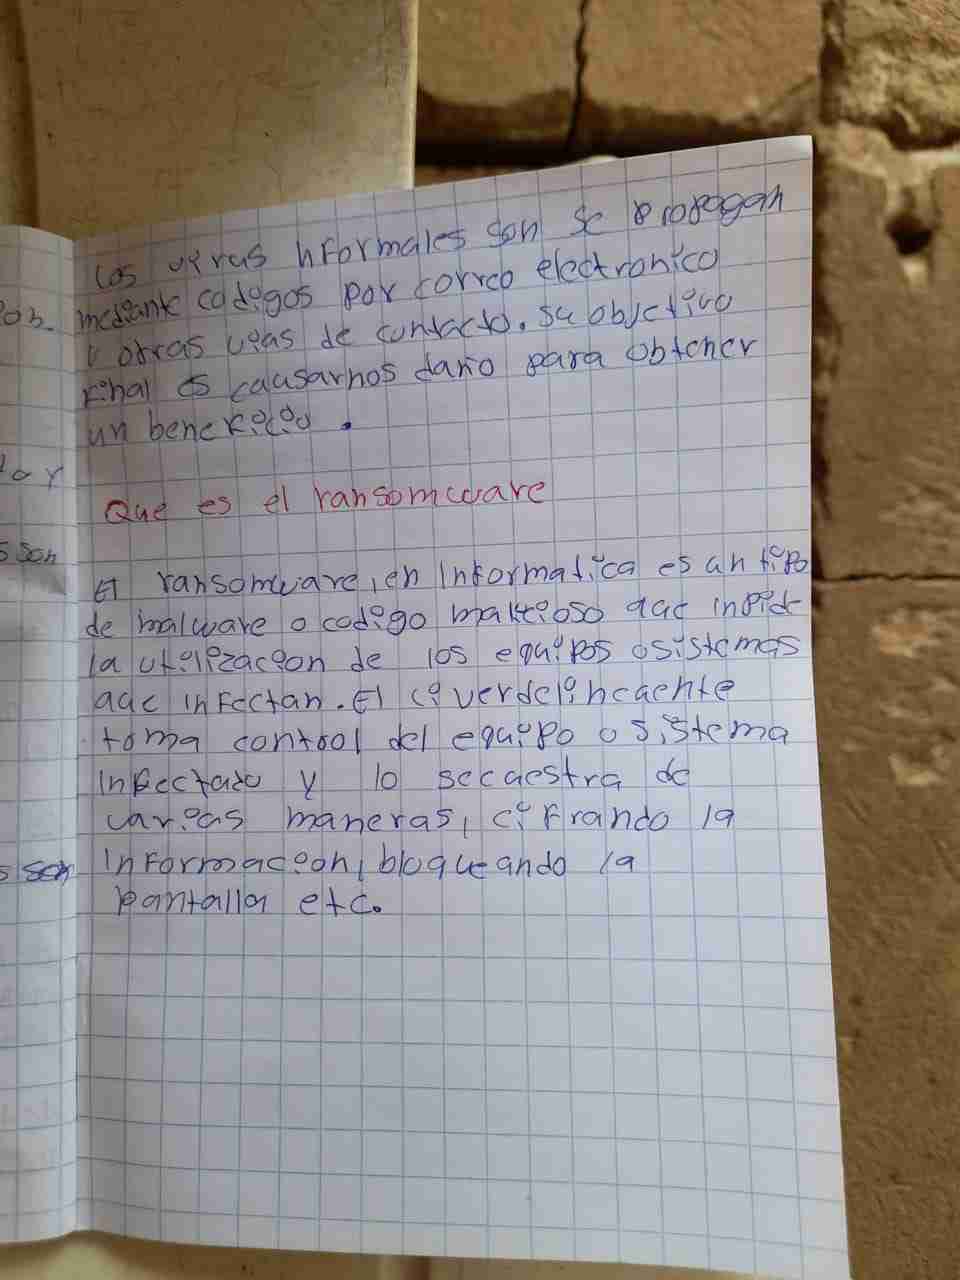 los virus nformales son se propagan
mediante codigos por correo electronico
u otras vias de contacto. su objetivo
final es causarnos daño para obtener
un beneficio.
Que es el ransomware
El ransomware, en Informatica es un tipo
de malware o codigo malicioso que inpide
la utilizacion de los equipos o sistemas
que infectan. El civerdelincuente
toma control del equipo o sistema
infectado y lo secuestra de
varias maneras, cifrando la
informacion, bloqueando la
pantalla etc.
son
son